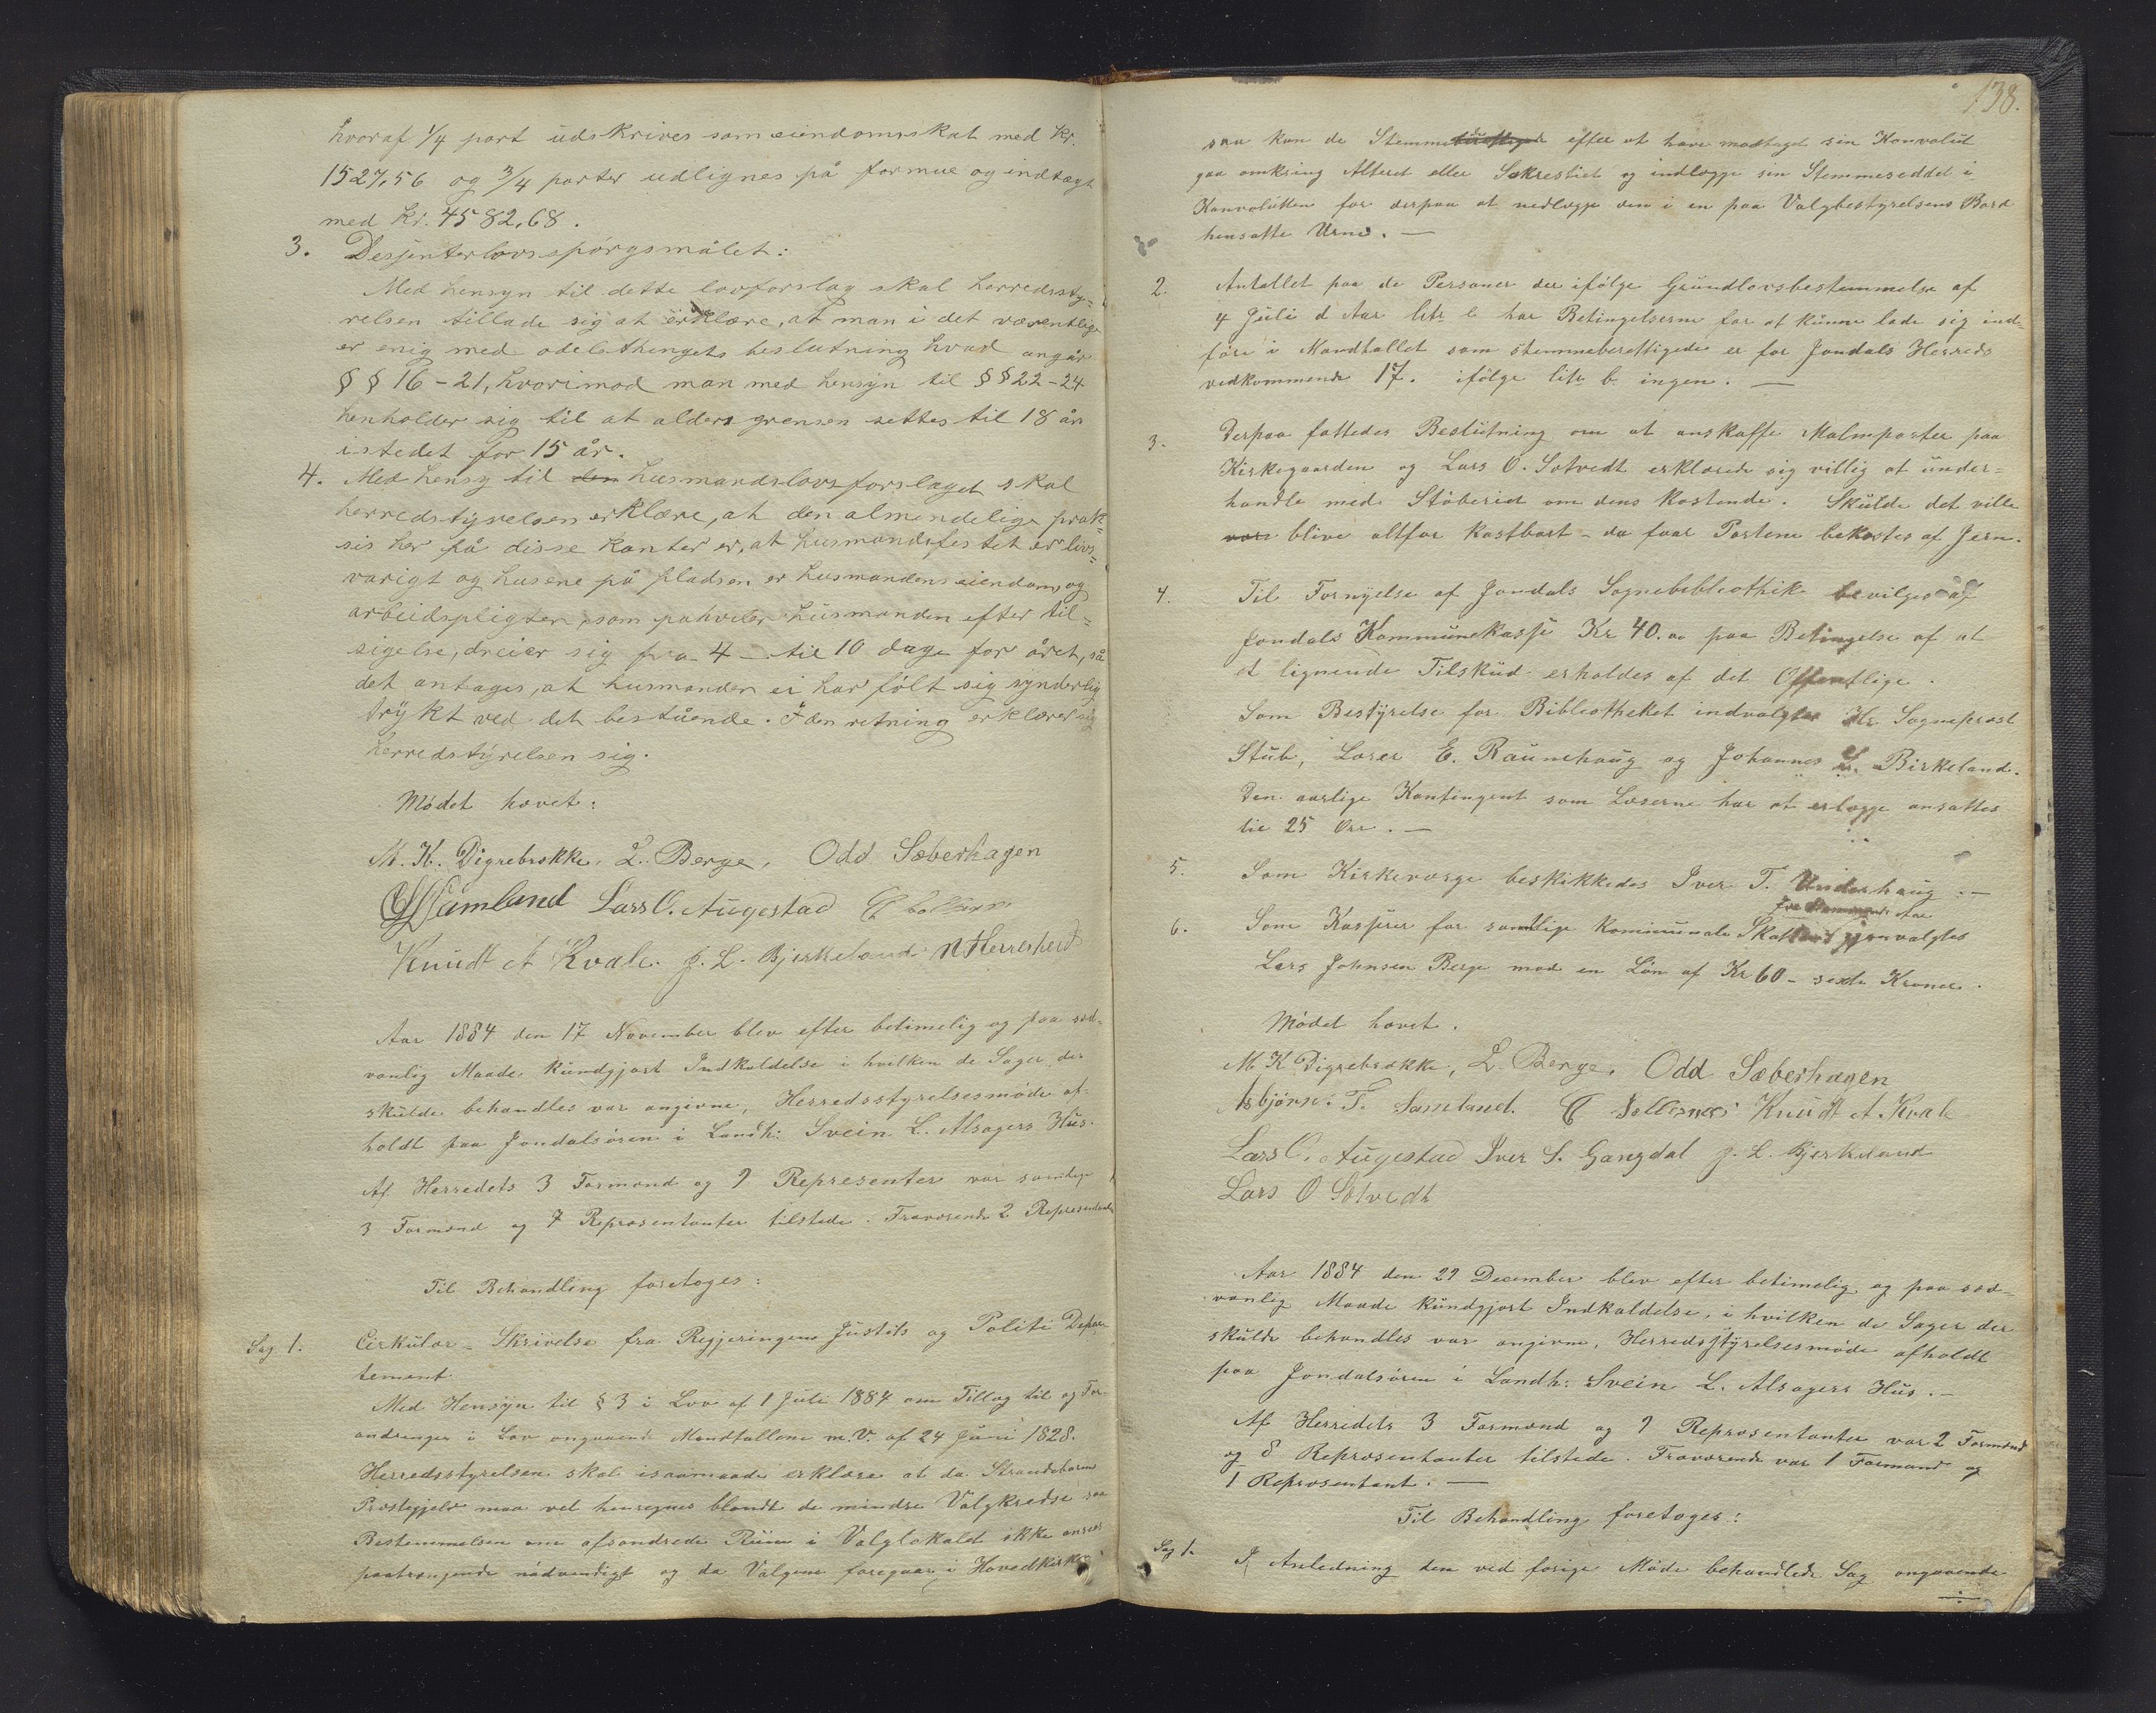 hvoraf 1/4 part udskrives som eiendomsskat med Kr.
1527,56 og 3/4 parter udlignes på formue og indtægt
med Kr. 4582,68.
3. Desjenterlovsspórgsmålet:
Med hensyn til dette lovforslag skal herredssty-
relsen tillade sig at erklære, at man i det væsentlige
er enig med odelsthingets beslutning hvad angår
§ § 16 - 21, hvorimod man med hensyn til § § 22 - 24
henholder sig til at alders grensen settes til 18 år
istedet for 15 år.
4. Med hensy til den husmandslovsforslaget skal
herredstyrelsen erklære, at den almindelige prak-
sis her på disse kanter er, at husmandsfestet er livs-
varigt og husene på pladsen er husmandens eiendom, og
arbeidspligten, som pahviler husmanden efter til-
sigelse, dreier sig fra 4 - til 10 dage for året, så
det antages, at husmanden ei har fólt sig synderlig
trykt ved det bestående. I den retning erklærer sig
herredstyrelsen sig.
Módet hævet:
M. K. Digrebrekke. L. Berge, Odd Sæberhagen
Samland Lars O. Augestad
Knudt A Kvale. J. L. Bjerkeland N Herreherd
Aar 1884 den 17 November blev efter betimelig og paa sæd-
vanlig Maade kundgjort Indkaldelse i hvilken de Sager der
skulde behandles var angivne, Herredsstyrelsesmóde af-
holdt paa Jondalsóren i Landh: Svein L. Alsagers Hus.
Af Herredets 3 Formænd og 9 Representer var samtlige
3 Formænd og 7 Repræsentanter tilstede. Fraværende 2 Repræsentanter
Til Behandling foretoges:
Sag 1. Cirkulær - Skrivelse fra Regjeringens Justits og Politi Depar-
tement.
Med Hensyn til § 3 i Lov af 1 Juli 1884 om Tillæg til og For-
andringer i Lov angaaende Mandtallene m.V. af 24 Juni 1828.
Herredsstyrelsen skal isaamaade erklære at da Strandebarm
Præstegjeld maa vel henregnes blandt de mindre Valgkredse saa
Bestemmelsen om afsondrede Rum i Valglokalet ikke ansees
paatrængende nódvendigt og da Valgene foregaar i Hovedkirken
138.
saa kan de Stemme efter at have modtaget sin Konvolut
gaa omkring Alteret eller Sakrestiet og indlægge sin Stemmeseddel i
Konvolutten for derpaa at nedlægge den i en paa Valgbestyrelsens Bord
hensatte Urne. —
2. Antallet paa de Personer der ifólge Grundlovsbestemmelse af
4 Juli d Aar litr. har Betingelserne for at kunne lade sig ind-
fóre i Mandtallet som stemmeberettigede er for Jondals Herreds
vedkommende 17. ifólge litr b. ingen. —
3. Derpaa fattedes Beslutning om at anskaffe Malmporter paa
Kirkegaarden og Lars O. Sotvedt erklærede sig villig at under-
handle med Stóberiet om dens Kostende. Skulde det ville
være blive altfor kostbart - da faar Portene bekostes af Jern.
4. Til Fornyelse af Jondals Sognebibliothik bevilges af
Jondals Kommunekasse Kr 40.00 paa Betingelse af at
et lignende Tilskud erholdes af det Offentlige.
Som Bestyrelse for Bibliotheket indvalgtes Hr. Sognepræst
Stub, Lærer E. Raunehaug og Johannes L. Birkeland.
Den aarlige Kontingent som Læserne har at erlægge ansattes
til 25 Óre. —
5. Som Kirkeværge beskikkedes Iver T. Underhaug. —
Aar
6. Som Kasserer for samtlige kommunale Skatter gjenvalgtes
Lars Johnsen Berge mod en Lón af Kr 60 - sexti Kroner.
Módet hævet.
M K Digrebrekke, L. Berge. Odd Sæberhagen
Asbjórn T. Samland. Knudt A. Kvale
Lars O. Augestad Iver S. Gangdal J. L. Bjerkeland
Lars O Sotvedt
Aar 1884 den 29 December blev efter betimelig og paa sæd-
vanlig Maade kundgjort Indkaldelse, i hvilken de Sager der
skulde behandles var angivne, Herredsstyrelsesmóde afholdt
paa Jondalsóren i Landh: Svein L. Alsagers Hus. —
Af Herredets 3 Formænd og 9 Repræsentanter var 2 Formænd
og 8 Repræsentanter tilstede. Fraværende var 1 Formand og
1 Repræsentant. —
Til Behandling foretoges:
Sag 1. I Anledning den ved forige Móde behandlede Sag angaaende